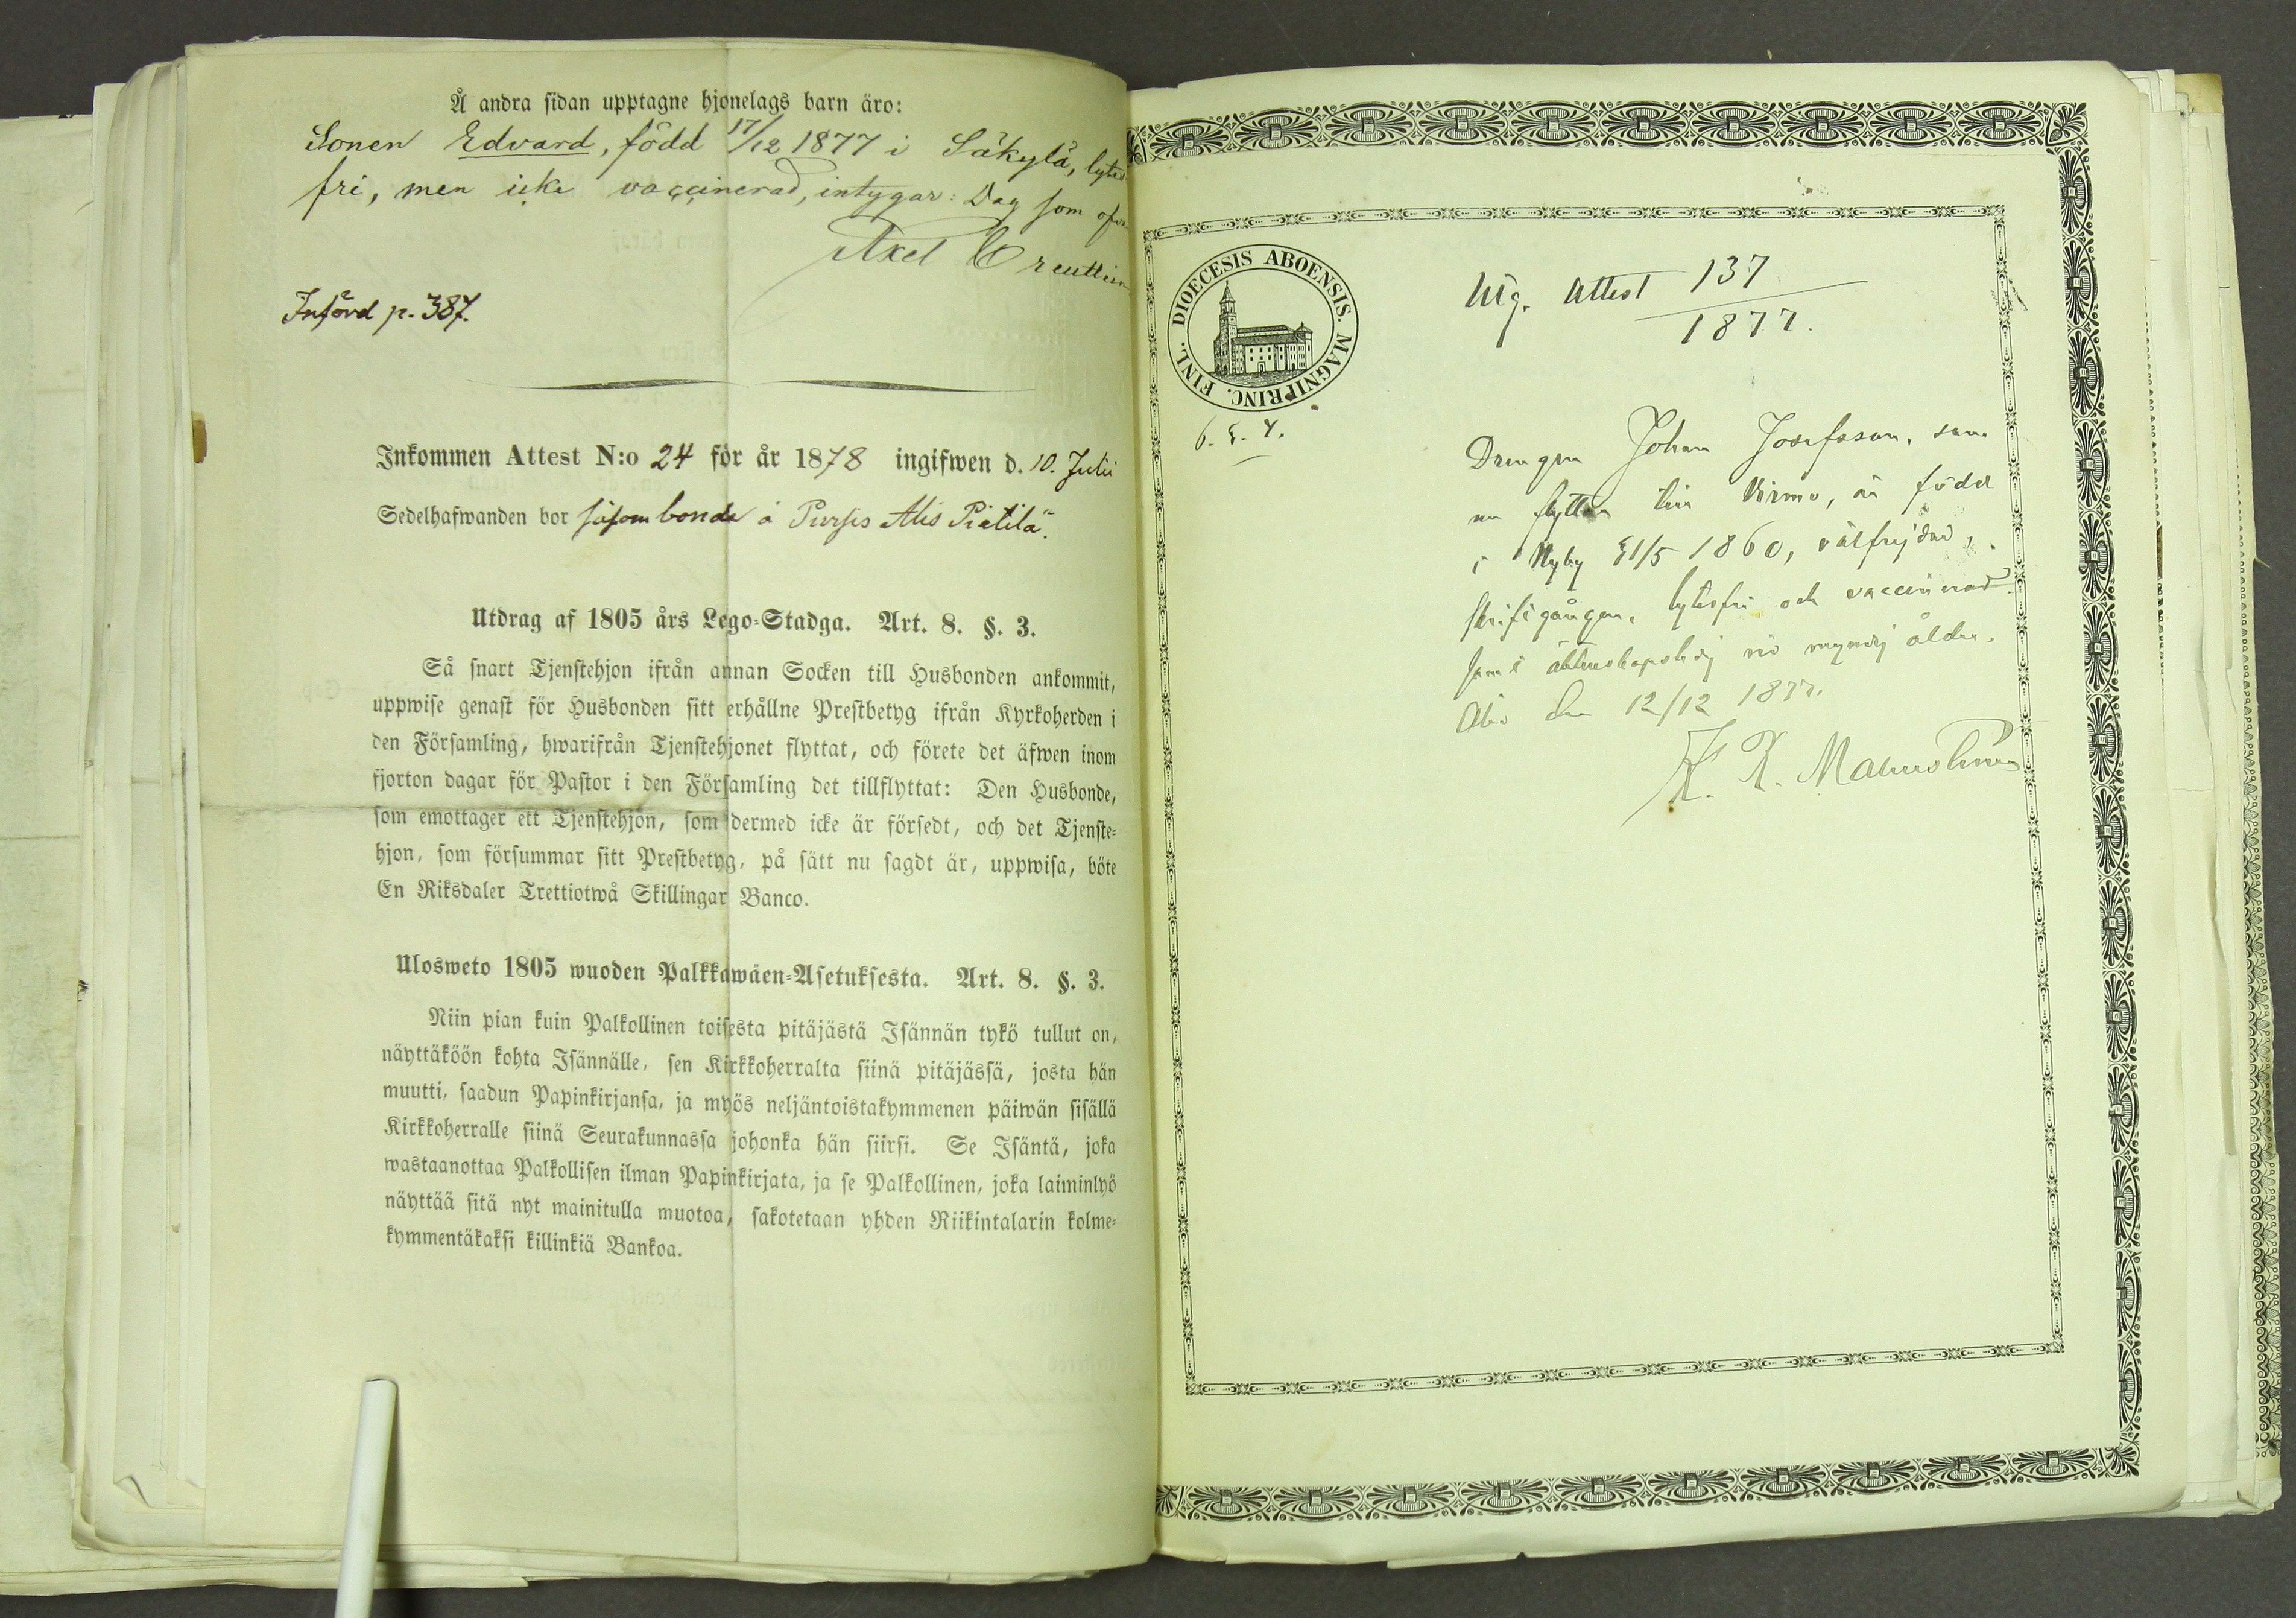 Å andra sidan upptagne hjonelags barn äro:
Sonen Edvard, född 17/12 1877 i Säkylä, lytes
fri, men icke vaccinerad, intygar: Dag som ofvan
Axel
Införd p. 387.
Inkommen Attest N:o 24 för år 1878 ingifwen d. 10. Julii
Sedelhafwanden bor såsom bonde å Alis Pietilä.
Utdrag af 1805 års Lego-Stadga. Art. 8. §. 3.
Så snart Tjenstehjon ifrån annan Socken till Husbonden ankommit,
uppwise genast för Husbonden sitt erhållne Prestbetyg ifrån Kyrkoherden i
den Församling, hwarifrån Tjenstehjonet flyttat, och förete det äfwen inom
fjorton dagar för Pastor i den Församling det tillflyttat: Den Husbonde,
som emottager ett Tjenstehjon, som dermed icke är försedt, och det Tjenste-
hjon, som försummar sitt Prestbetyg, på sätt nu sagdt är, uppwisa, böte
En Riksdaler Trettiotwå Skillingar Banco.
Ulosweto 1805 wuoden Palkkawäen-Asetuksesta. Art. 8. §. 3.
Niin pian kuin Palkollinen toisesta pitäjästä Isännän tykö tullut on,
näyttäköön kohta Isännälle, sen Kirkkoherralta siinä pitäjässä, josta hän
muutti, saadun Papinkirjansa, ja myös neljäntoistakymmenen päiwän sisällä
Kirkkoherralle siinä Seurakunnassa johonka hän siirsi. Se Isäntä, joka
wastaanottaa Palkollisen ilman Papinkirjata, ja se Palkollinen, joka laiminlyö
näyttää sitä nyt mainitulla muotoa, sakotetaan yhden Riikintalarin kolme-
kymmentäkaksi killinkiä Bankoa.
DIOECESIS ABOENSIS. MAGNIPRINC. FINL.
Utg. Attest 137
1877.
Drengen Johan Josefsson, som
nu flyttar till Virmo, är född
i Nyby 31/5 1860, välfrejdad,
skriftgången, lytesfri och vaccinerad.
samt äktenskapsledig vid myndig ålder.
Åbo den 12/12 1877.
K. K.